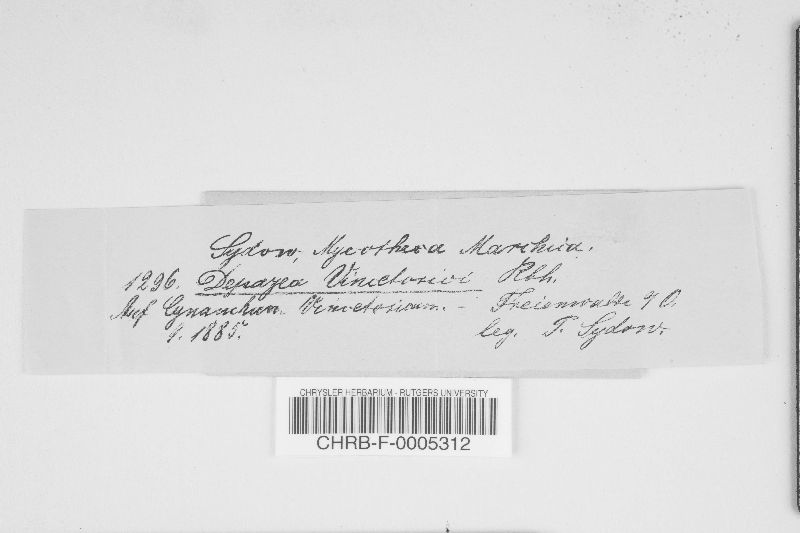 Sydow, Mycotheca Marchica.
1296. Depazea Vincetoxici Rbh.
Auf Cynanchum Vincetoxicum. - Freienwalde a/O.
9. 1885. leg. P. Sydow.
CHRYSLER HERBARIUM - RUTGERS UNIVERSITY
CHRB-F-0005312